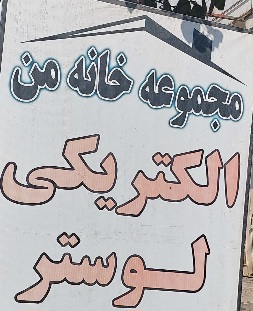 مجموعه خانه من
الکتریکی
لوستر